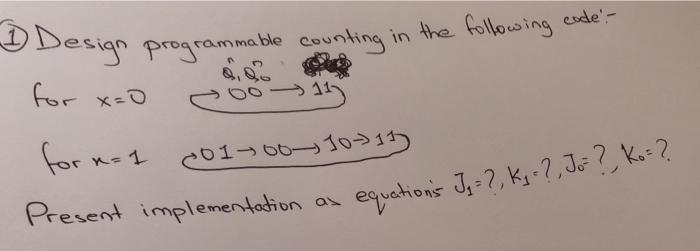 ① Design programmable counting in the following code:-
Q₁Q₀
for x=0 → 00 → 11
for x=1 → 01 → 00 → 10 → 11
Present implementation as equations J₁=?, K₁=?, J₀=?, K₀=?